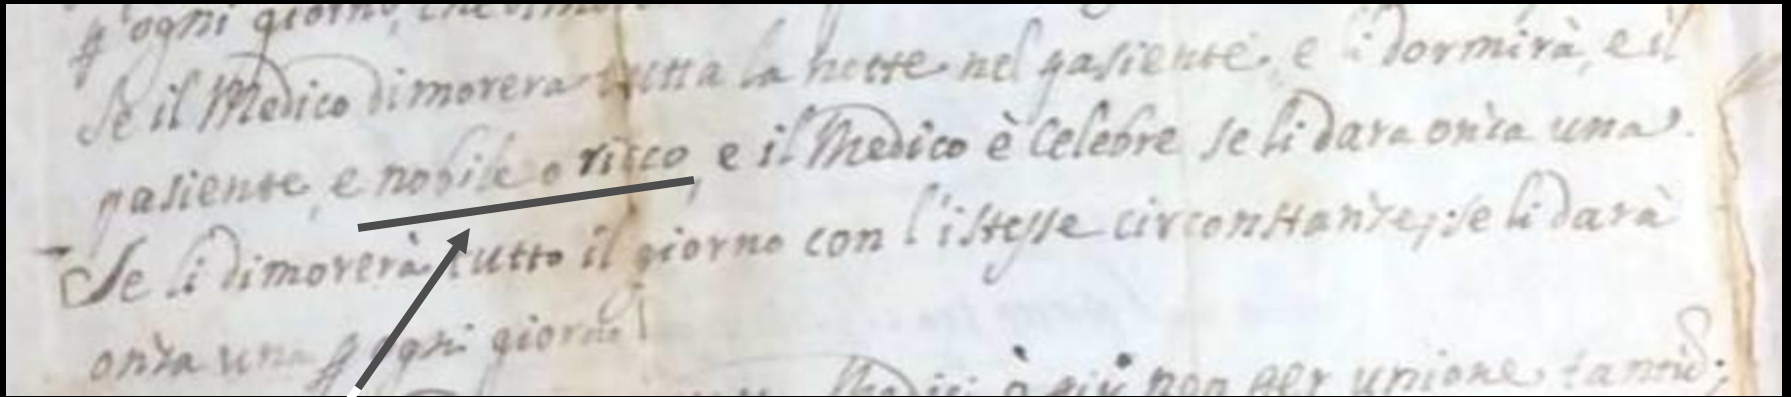 ogni giorno,
Se il Medico dimorera tutta la notte nel pasiente, e li dormirà, e il
pasiente, e nobile o ricco, e il Medico è Celebre se li dara onza una.
Se li dimorerà tutto il giorno con l'istesse circonstanze, se li darà
onza una ogni giorno
Medici o più non per unione